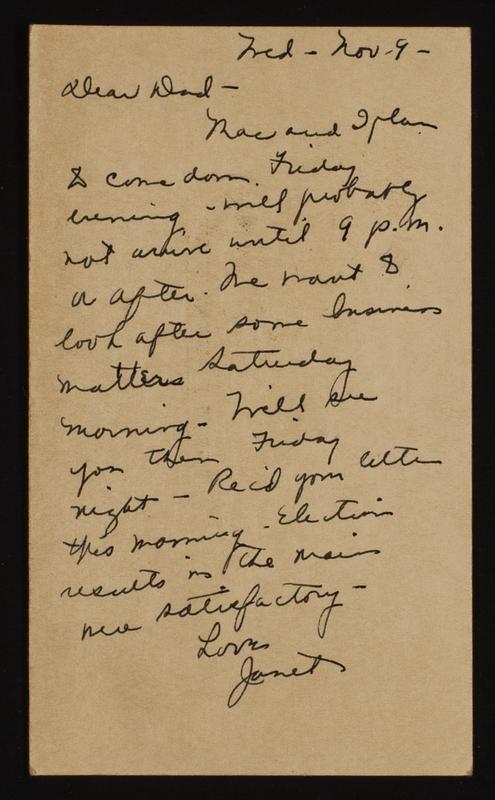 Wed - Nov - 9 -
Dear Dad -
Mac and I plan
to come down Friday
evening - will probably
not arrive until 9 p.m.
or after. We want to
look after some business
matters Saturday
morning - We'll see
you then Friday
night - Rec'd your letter
this morning. Election
results in the main
were satisfactory -
Love
Janet